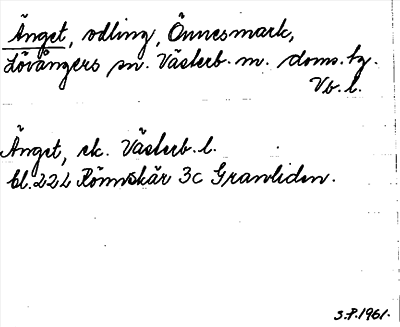 Änget, odling, Önnesmark,
Lövångers sn. Västerb. m. doms. tg.
Vb. l.
Änget, ek. Västerb. l.
bl. 22 L Rönnskär 3c Granliden.
S.P. 1961.